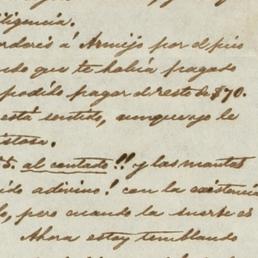 iligencia.
á Armijo por el piso
que te había pagado
pagar el resto de $70.
está sentido, aunque yo le

al contado!! y las mantas
adivino! con la existencia
lo, pero cuando la suerte es
Ahora estoy temblando